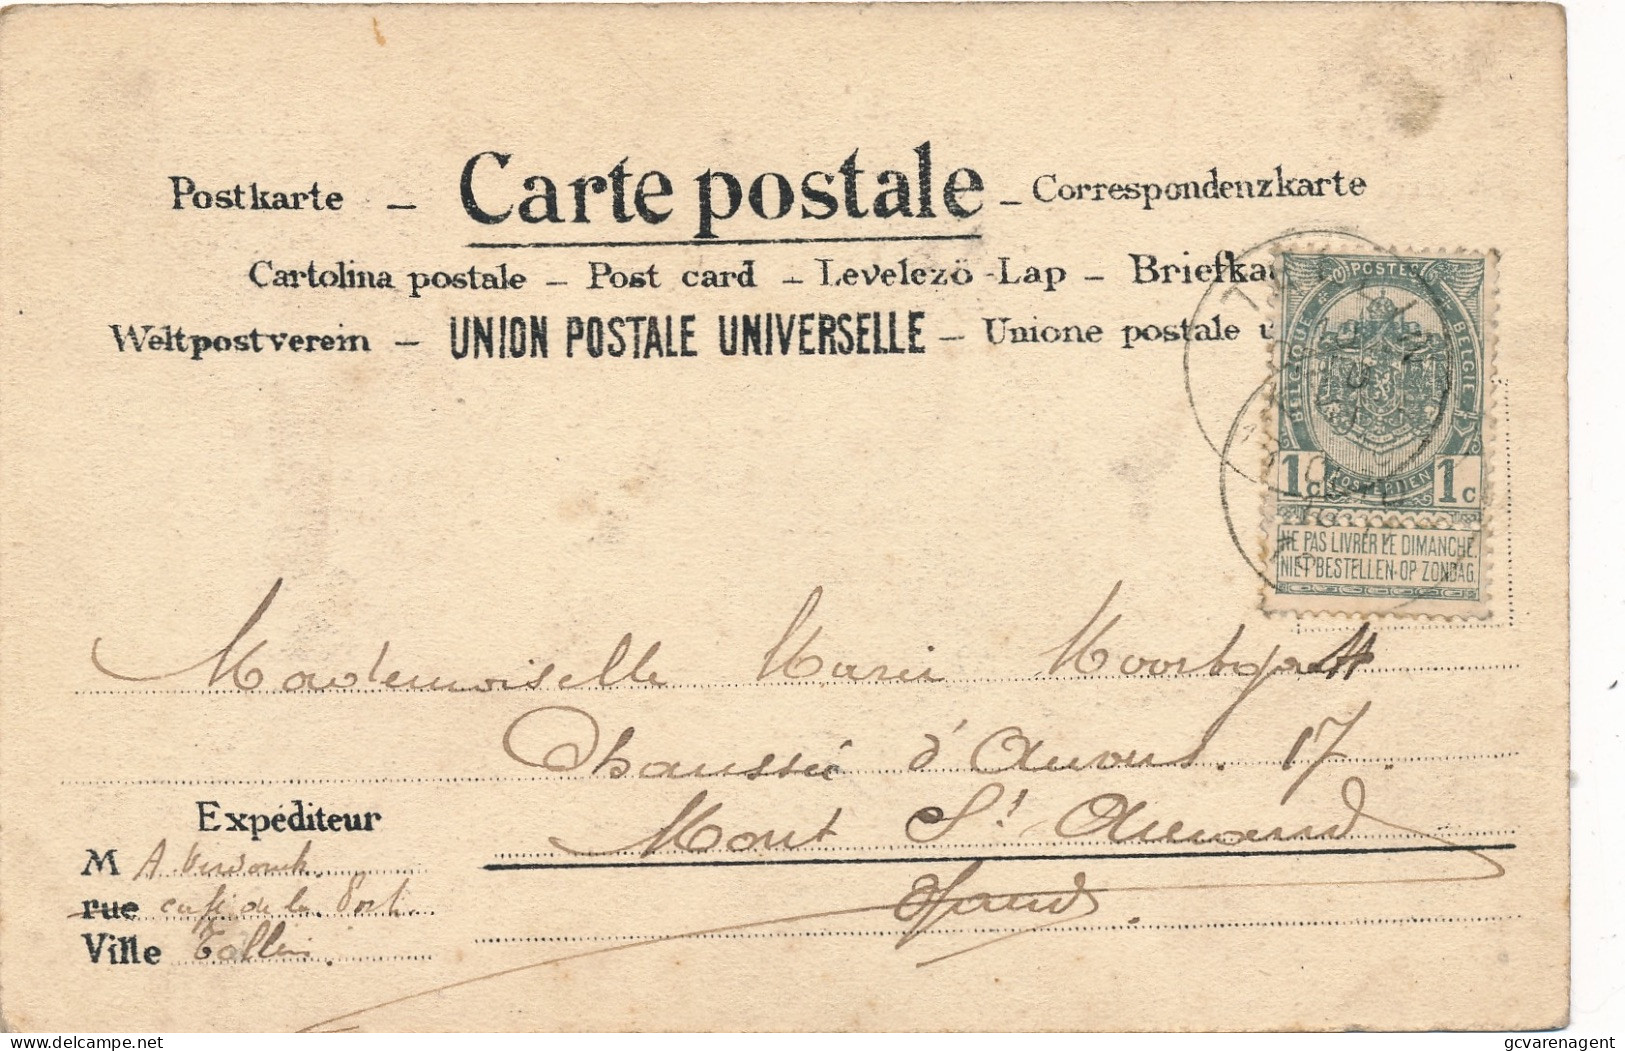 Postkarte — Carte postale — Correspondenzkarte
Cartolina postale — Post card — Levelezö-Lap — Briefka
Weltpostverein — UNION POSTALE UNIVERSELLE — Unione postale u
POSTES
BELGIQUE
BELGIE
POSTERIJEN
1c 1c
NE PAS LIVRER LE DIMANCHE.
NIET BESTELLEN OP ZONDAG.
Mademoiselle Marie
Chaussée d'Anvers. 17.
Expéditeur
Mont St. Amand
M A
rue café de la
Gand.
Ville
gcvarenagent